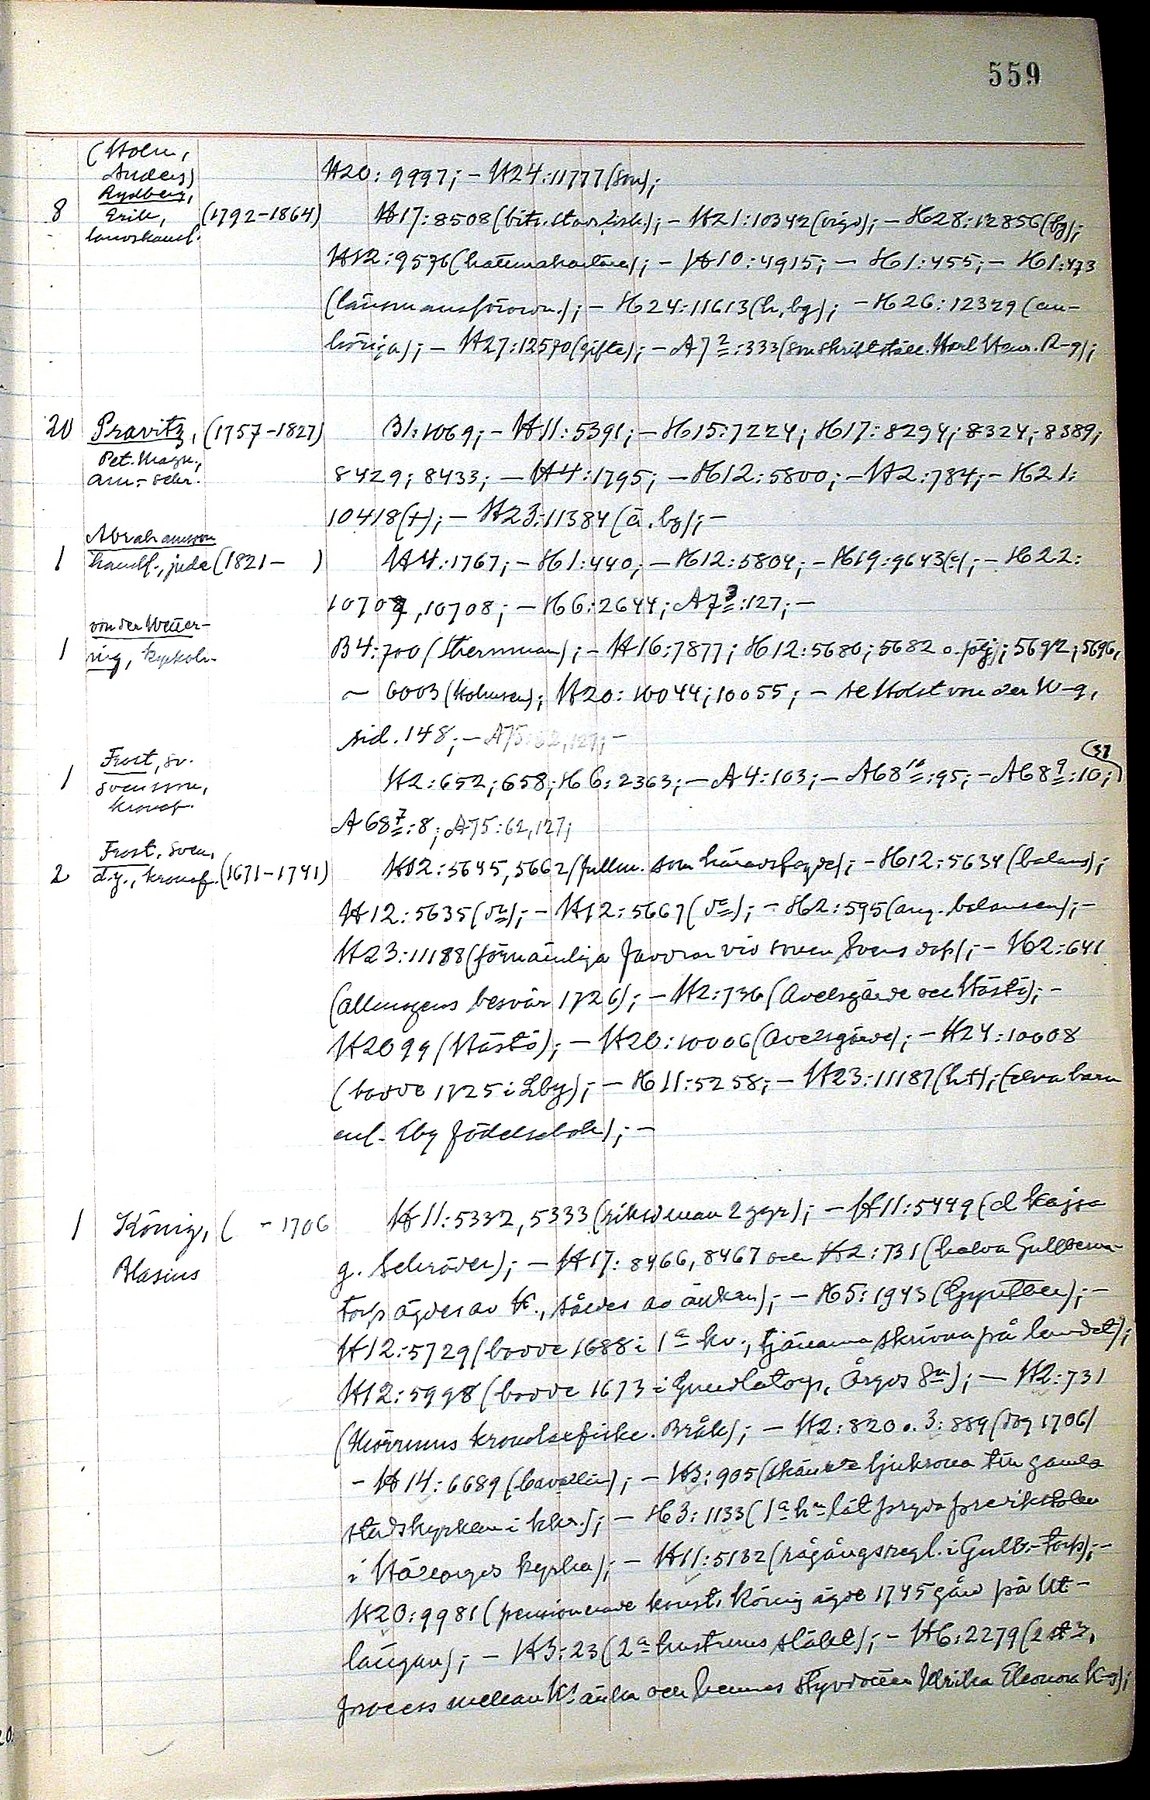 559
(Holm,
Anders)
H20: 9997; - H24:11777 (son);
Rydberg,
8 Erik, (1792-1864) H17:8508 (bitr. ); - H21:10342 (vigd); - H28:12856 (bg);
landskansl.
H12:9576 ; - H10:4915; - H1:455; - H1:473
(länsmansförordn.); - H24:11613 (h, bg); - H26:12329 (an-
höriga); - H27:12570 (gifte); - A7²:333 (son Karl Hen. R-g);
20 Pravitz, (1757-1827) B1:1069; - H11:5391; - H15:7224; H17:8294; 8324; 8389;
Pet. Magn,
am.-sekr.
8429; 8433; - H4:1795; - H12:5800; - H2:784; - H21:
10418 (+); - H23:11384 (ä. bg); -
Abrahamsson
1 handl., jude (1821- ) H4:1767; - H1:440; - H12:5804; - H19:9643 ; - H22:
10707, 10708; - H6:2644; A7³:127; -
von der Wetter-
1 ing, kyrkoh. B4:700 (Thernman); - H16:7877; H12:5680; 5682 o. följ; 5692; 5696,
~ 6003 ; H20:10044; 10055; - se Holst von der W-g,
sid. 148; - A75:62, 127; -
Frost, Sv.
1 Svensson, H2:652; 658; H6:2363; - A4:103; - A68¹⁰:95; - A68⁹:10; (37)
kronof.
A68⁷:8; A75:62, 127;
Frost, Sven,
2 d.y., kronof. (1671-1741) H12:5645, 5662 (fullm. som häradsfogde); - H12:5634 (balans);
H12:5635 (d:o); - H12:5667 (d:o); - H2:595 (ang. balansen); -
H23:11188 (förnämliga faddrar vid sonen Svens dop); - H2:641
(allmogens besvär 1726); - H2:736 (Avelsgärde och Hästö); -
H2099 (Hästö); - H20:10006 (Avelsgärde); - H24:10008
(bodde 1725 i Lby); - H11:5258; - H23:11187 (h+); (elva barn
enl. Lby födelsebok); -
1 König, ( -1706 H11:5332, 5333 (riksdman 2 ggr); - H11:5449 (d Kajsa
Blasius
g. Schröder); - H17:8466, 8467 och H2:731 (halva Gullberna-
torp ägdes av K., såldes av änkan); - H5:1943 ; -
H12:5729 (bodde 1688 i 1:a kv., tjänarna skrivna på landet);
H12:5998 (bodde 1673 i Gundlatorp, ); - H2:731
(Mörrums kronolaxfiske. Bråk); - H2:820 o. 3:889 (dog 1706)
- H14:6689 (Cavallin); - H3:905 (skänkte ljuskrona till gamla
stadskyrkan i ); - H3:1133 (1:a h:n lät pryda predikstolen
i kyrka); - H11:5132 (rågångsregl. i Gullb:-torp); -
H20:9981 (pensionerade konst. König ägde 1745 gård på Ut-
längan); - H3:23 (2:a hustruns släkt); - H6:2279 (2 st
process mellan K:s änka och hennes styvdotter Ulrika Eleonora K-g);